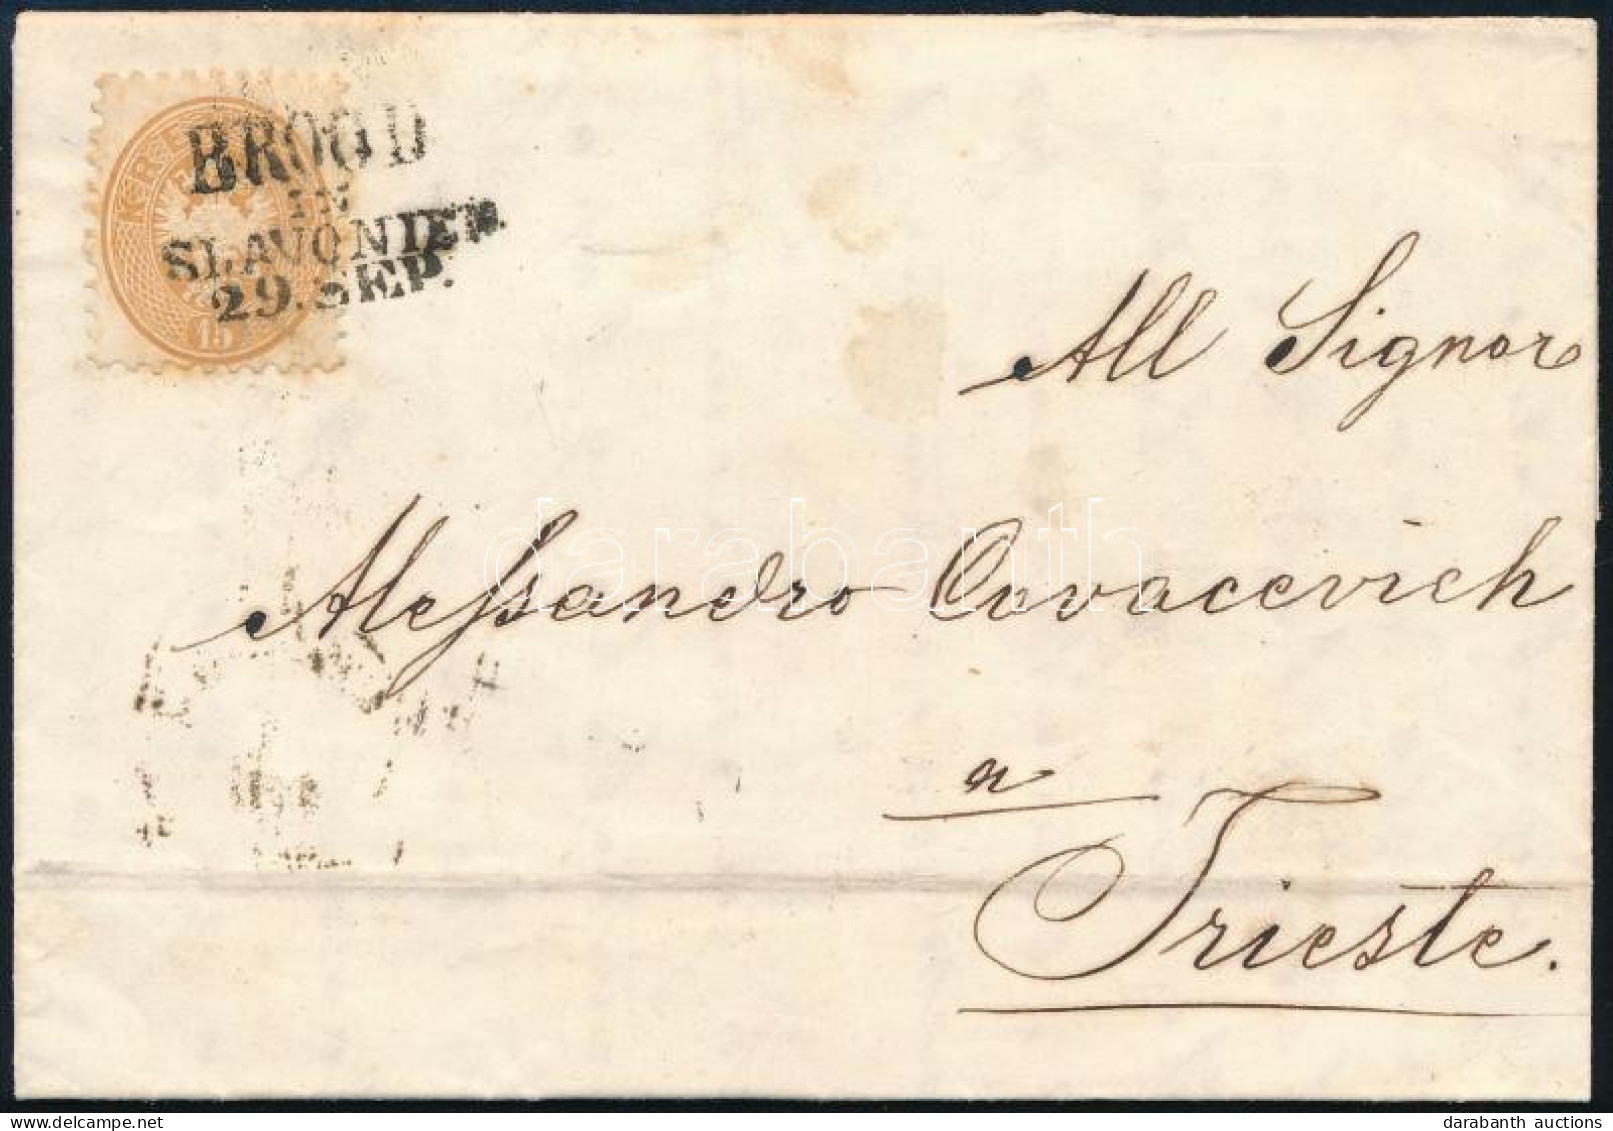 BROOD
IN
SLAVONIEN.
29. SEP.
15
All Signor
Alessandro Covacevich
a
Trieste.
darabanth
darabanth auctions